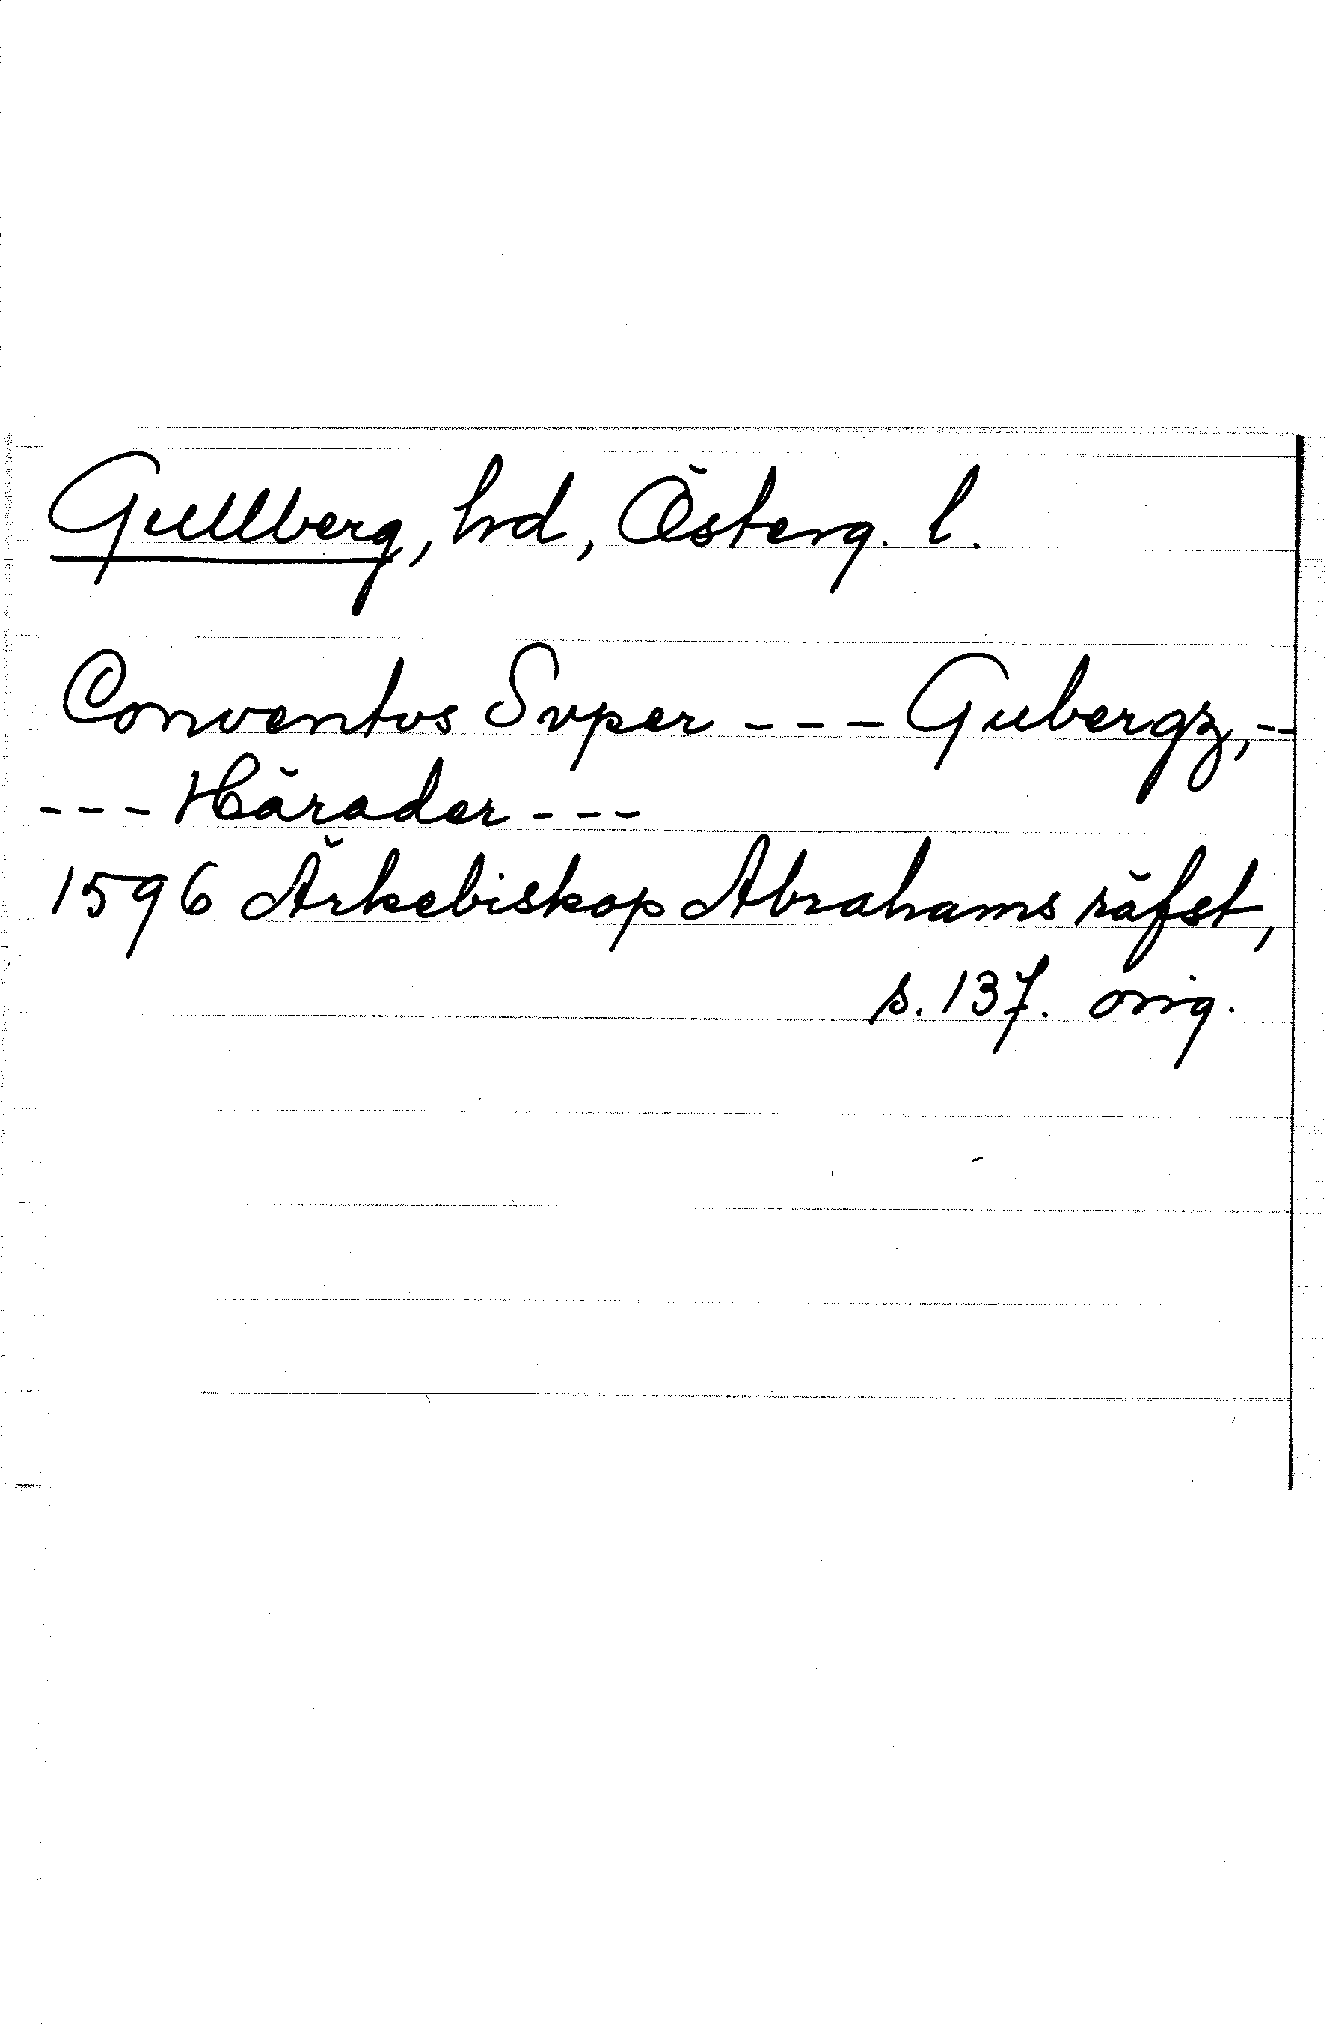 Gullberg, hd, Österg. l.
Conventvs Svper --- Gubergz, --
--- Härader ---
1596 Ärkebiskop Abrahams räfst,
s. 137. orig.